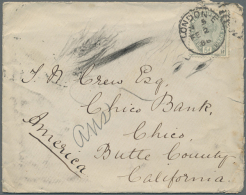 LONDON-E
T. B. Crew Esq.
Chico Bank,
Chico.
Butte County
California.
America
ans